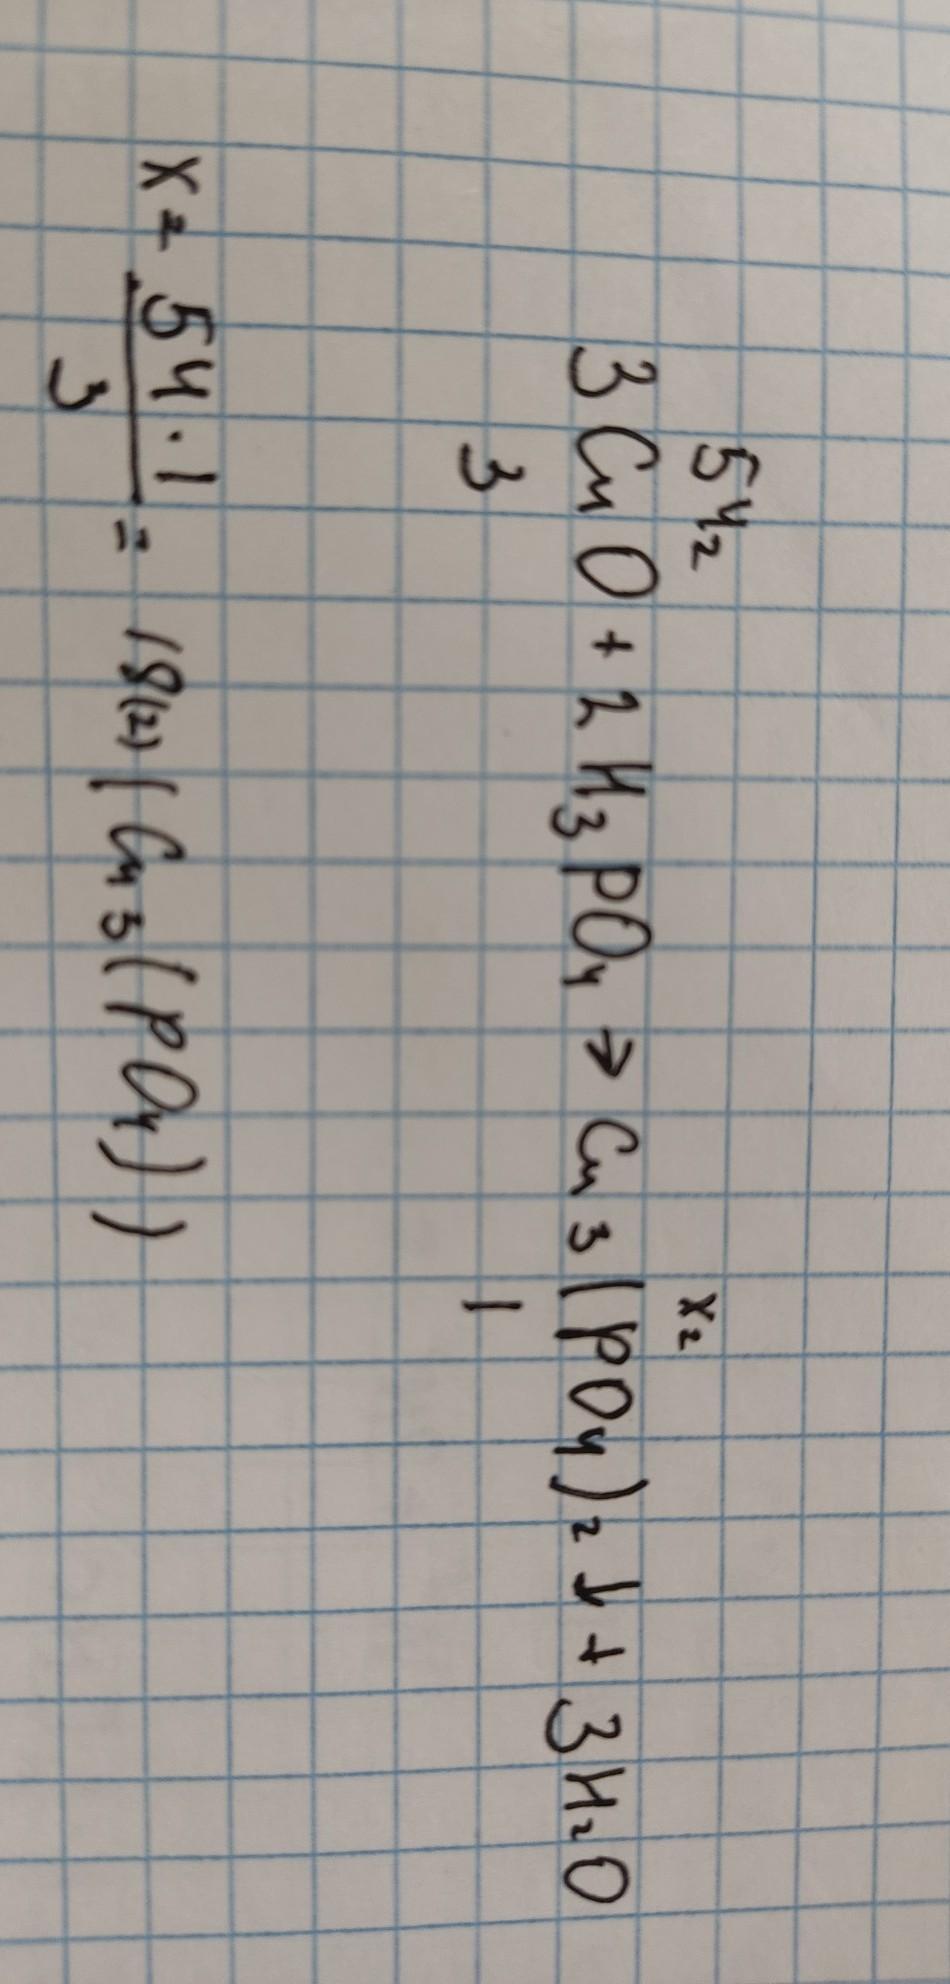 54г xг
3CuO + 2H₃PO₄ → Cu₃(PO₄)₂↓ + 3H₂O
3 1
x = 54·1/3 = 18(г)(Cu₃(PO₄))